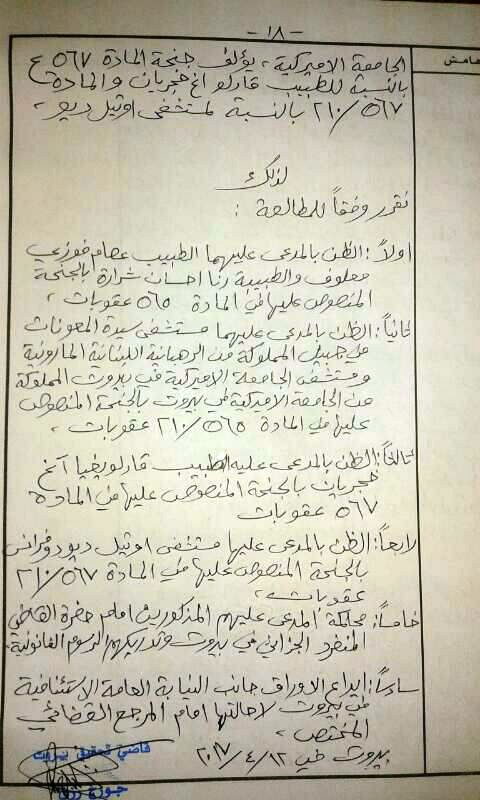 - ١٨ -
هامش
الجامعة الاميركية، يؤلف جنحة المادة ٥٦٧ ع
بالنسبة للطبيب قارلو اغجريان والمادة
٢١٠/٥٦٧ بالنسبة لمستشفى اوتيل ديو،
لذلك
نقرر وفقاً للمطالعة :
اولاً: الظن بالمدعى عليهما الطبيب عصام فوزي
معلوف والطبيبة رنا احسان شرارة بالجنحة
المنصوص عليها في المادة ٥٦٥ عقوبات،
ثانياً: الظن بالمدعى عليهما مستشفى سيدة المعونات
في جبيل المملوكة من الرهبانية اللبنانية المارونية
ومستشفى الجامعة الاميركية في بيروت المملوكة
من الجامعة الاميركية في بيروت بالجنحة المنصوص
عليها في المادة ٢١٠/٥٦٥ عقوبات،
ثالثاً: الظن بالمدعى عليه الطبيب قارلو
بالجنحة المنصوص عليها في المادة
٥٦٧ عقوبات
رابعاً: الظن بالمدعى عليها مستشفى اوتيل ديو دو فرانس
بالجنحة المنصوص عليها في المادة ٢١٠/٥٦٧
عقوبات،
خامساً: محاكمة المدعى عليهم المذكورين امام حضرة القاضي
المنفرد الجزائي في بيروت وتدريكهم الرسوم القانونية،
سادساً: ايداع الاوراق جانب النيابة العامة الاستئنافية
في بيروت لاحالتها امام المرجع القضائي
المختص،
بيروت في ١٢/٤/٢٠١٧
قاضي تحقيق بيروت